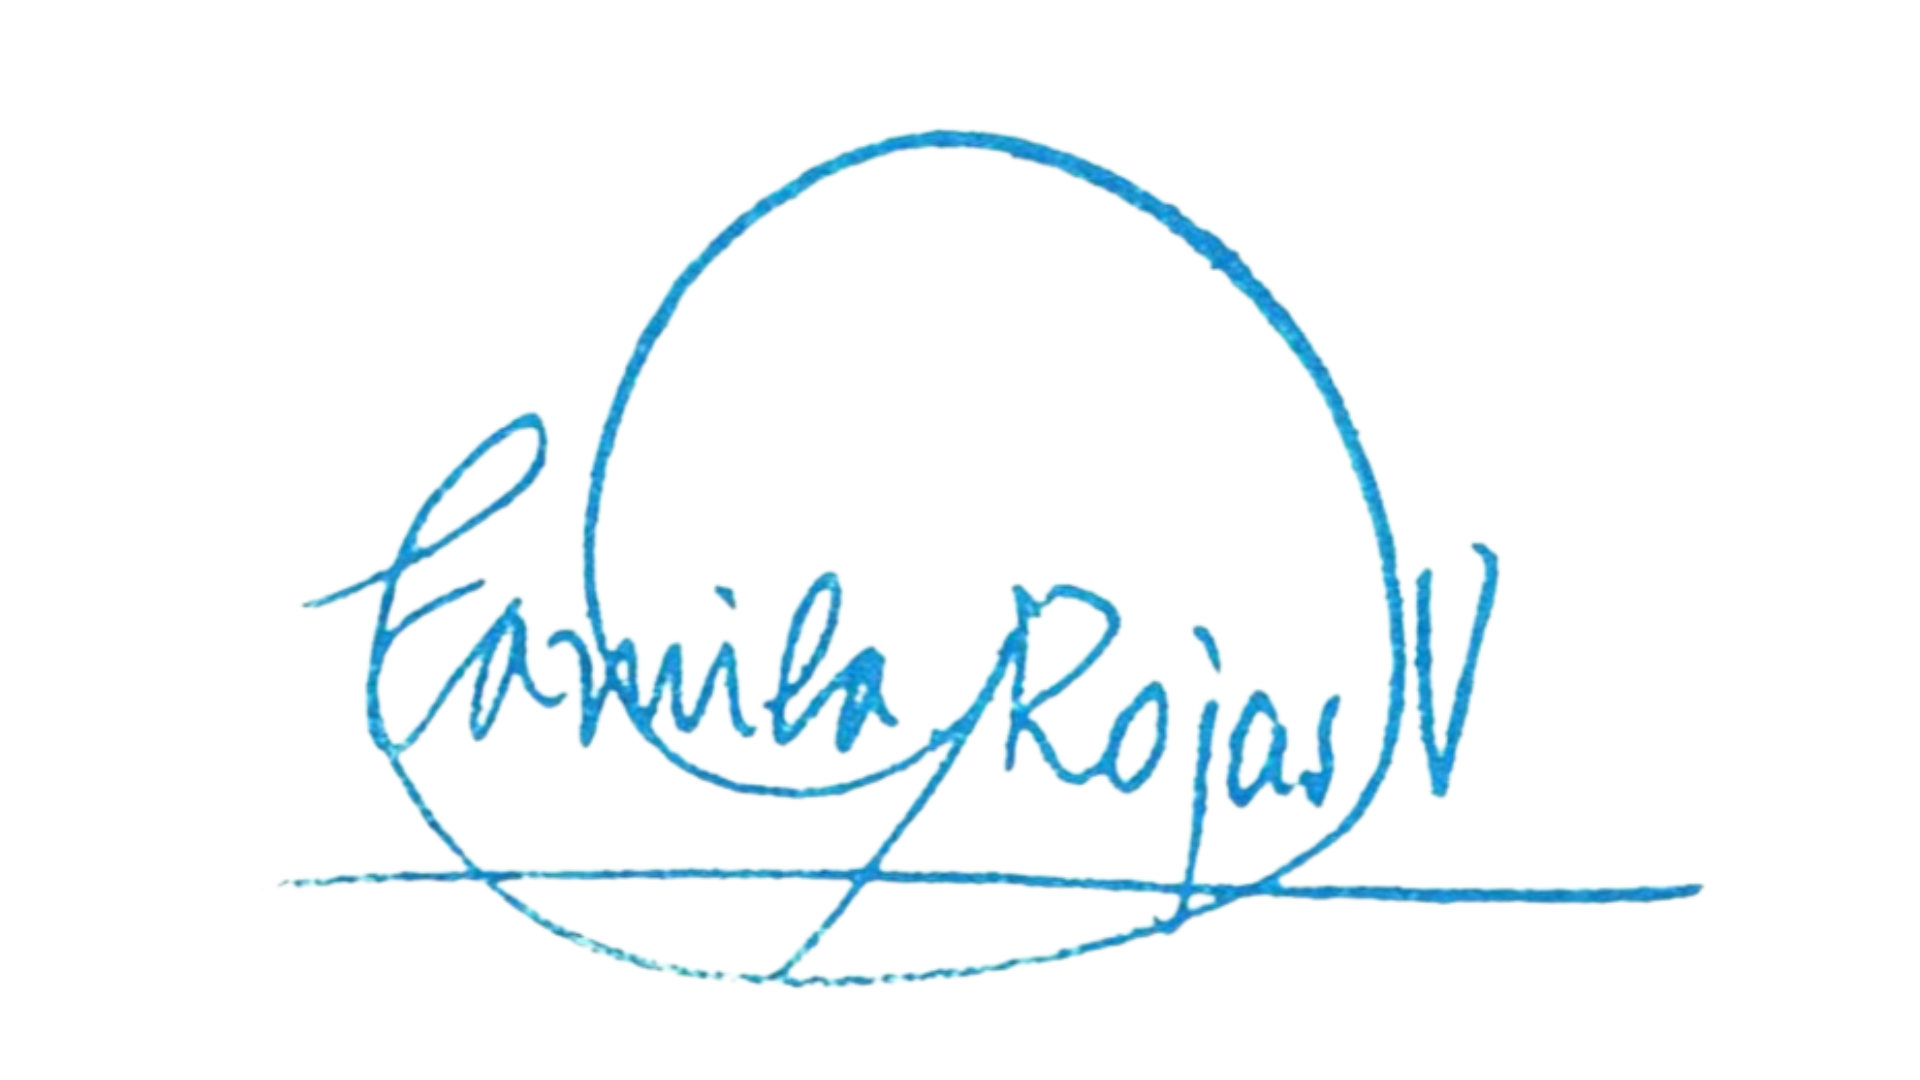 Camila Rojas V